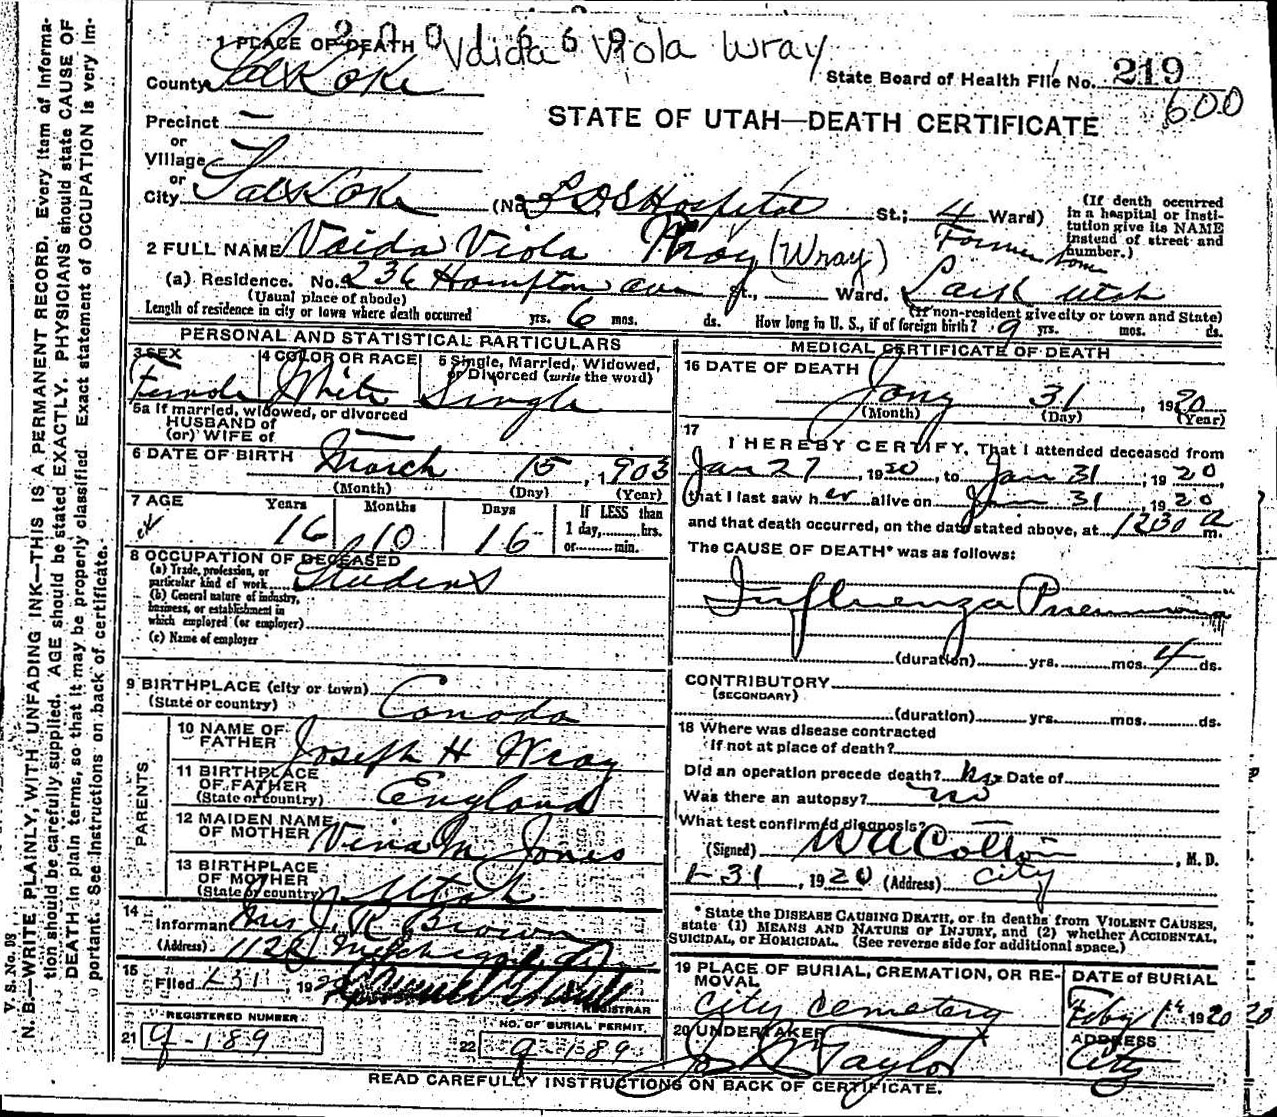 2001669
1 PLACE OF DEATH Vaida Viola Wray
County Salt Lake
State Board of Health File No. 219
600
Precinct —
STATE OF UTAH—DEATH CERTIFICATE
or
Village —
or
City Salt Lake (No. L D S Hospital St.; 4 Ward)
(If death occurred in a hospital or institution give its NAME instead of street and number.)
2 FULL NAME Vaida Viola Wray (Wray)
Former home
(a) Residence. No. 236 Hampton ave St., Ward. Lark Utah
(Usual place of abode) (If non-resident give city or town and State)
Length of residence in city or town where death occurred yrs. 6 mos. ds. How long in U. S., if of foreign birth? 9 yrs. mos. ds.
PERSONAL AND STATISTICAL PARTICULARS
3 SEX Female
4 COLOR OR RACE White
5 Single, Married, Widowed, or Divorced (write the word) Single
5a If married, widowed, or divorced
HUSBAND of
(or) WIFE of —
6 DATE OF BIRTH March 15, 1903
(Month) (Day) (Year)
7 AGE Years Months Days If LESS than
16 10 16 1 day, hrs.
or min.
8 OCCUPATION OF DECEASED
(a) Trade, profession, or
particular kind of work Student
(b) General nature of industry,
business, or establishment in
which employed (or employer)
(c) Name of employer
9 BIRTHPLACE (city or town)
(State or country) Canada
PARENTS
10 NAME OF FATHER Joseph H Wray
11 BIRTHPLACE OF FATHER
(State or country) England
12 MAIDEN NAME OF MOTHER Vina M Jones
13 BIRTHPLACE OF MOTHER
(State or country) Utah
14
Informant Mrs J. R Brown
(Address) 1128
15
Filed 1-31, 1920
REGISTRAR
REGISTERED NUMBER
21 q-189
NO. OF BURIAL PERMIT
22 q-189
MEDICAL CERTIFICATE OF DEATH
16 DATE OF DEATH
Jany 31, 1920
(Month) (Day) (Year)
17
I HEREBY CERTIFY, That I attended deceased from
Jan 27, 1920, to Jan 31, 1920,
that I last saw her alive on Jan 31 1920
and that death occurred, on the date stated above, at 1230 a m.
The CAUSE OF DEATH* was as follows:
Influenza Pneumonia
(duration) yrs. mos. 4 ds.
CONTRIBUTORY
(SECONDARY)
(duration) yrs. mos. ds.
18 Where was disease contracted
if not at place of death?
Did an operation precede death? No Date of
Was there an autopsy? no
What test confirmed diagnosis? —
(Signed) W A Colton, M. D.
1-31, 1920 (Address) City
* State the DISEASE CAUSING DEATH, or in deaths from VIOLENT CAUSES,
state (1) MEANS AND NATURE OF INJURY, and (2) whether ACCIDENTAL,
SUICIDAL, or HOMICIDAL. (See reverse side for additional space.)
19 PLACE OF BURIAL, CREMATION, OR REMOVAL
City Cemetery
DATE OF BURIAL
Feby 1st 1920 20
20 UNDERTAKER
Taylor
ADDRESS
City
READ CAREFULLY INSTRUCTIONS ON BACK OF CERTIFICATE.
V. S. No. D8
N. B.—WRITE PLAINLY, WITH UNFADING INK—THIS IS A PERMANENT RECORD. Every item of informa-
tion should be carefully supplied. AGE should be stated EXACTLY. PHYSICIANS should state CAUSE OF
DEATH in plain terms, so that it may be properly classified. Exact statement of OCCUPATION is very im-
portant. See instructions on back of certificate.